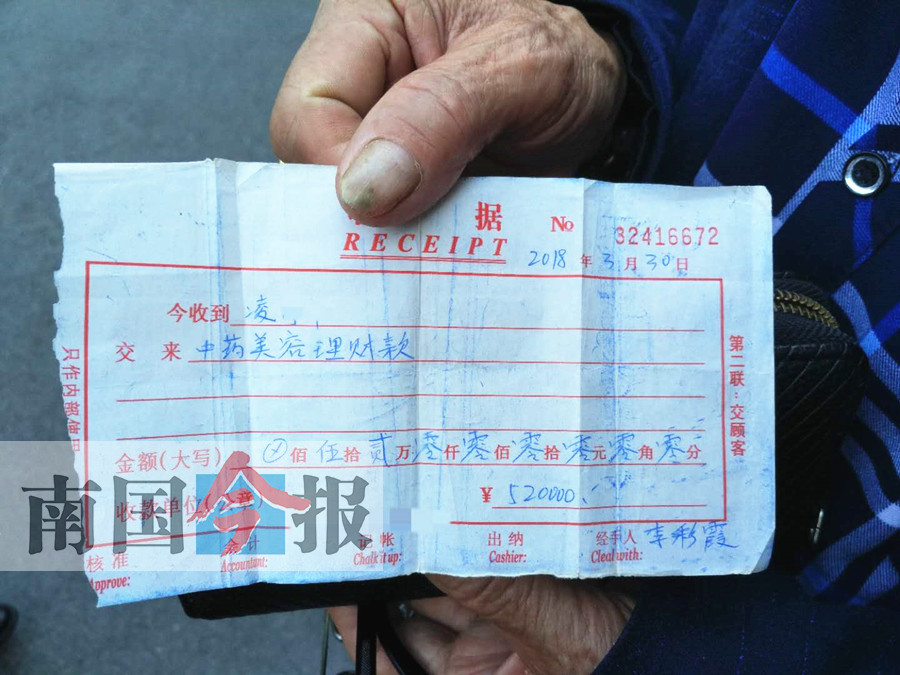 据 No 32416672
RECEIPT
2018 年 3 月 30 日
今收到 凌
交 来 中药美容理财款
金额(大写) ⊗ 佰 伍 拾 贰 万 零 仟 零 佰 零 拾 零 元 零 角 零 分
收款单位(公章) ¥ 520000.
核 准 会 计 记 帐 出 纳 经手人 李彩霞
Approve: Accountant: Chalk it up: Cashier: Cleal with:
第二联:交顾客
只作内部使
南国今报